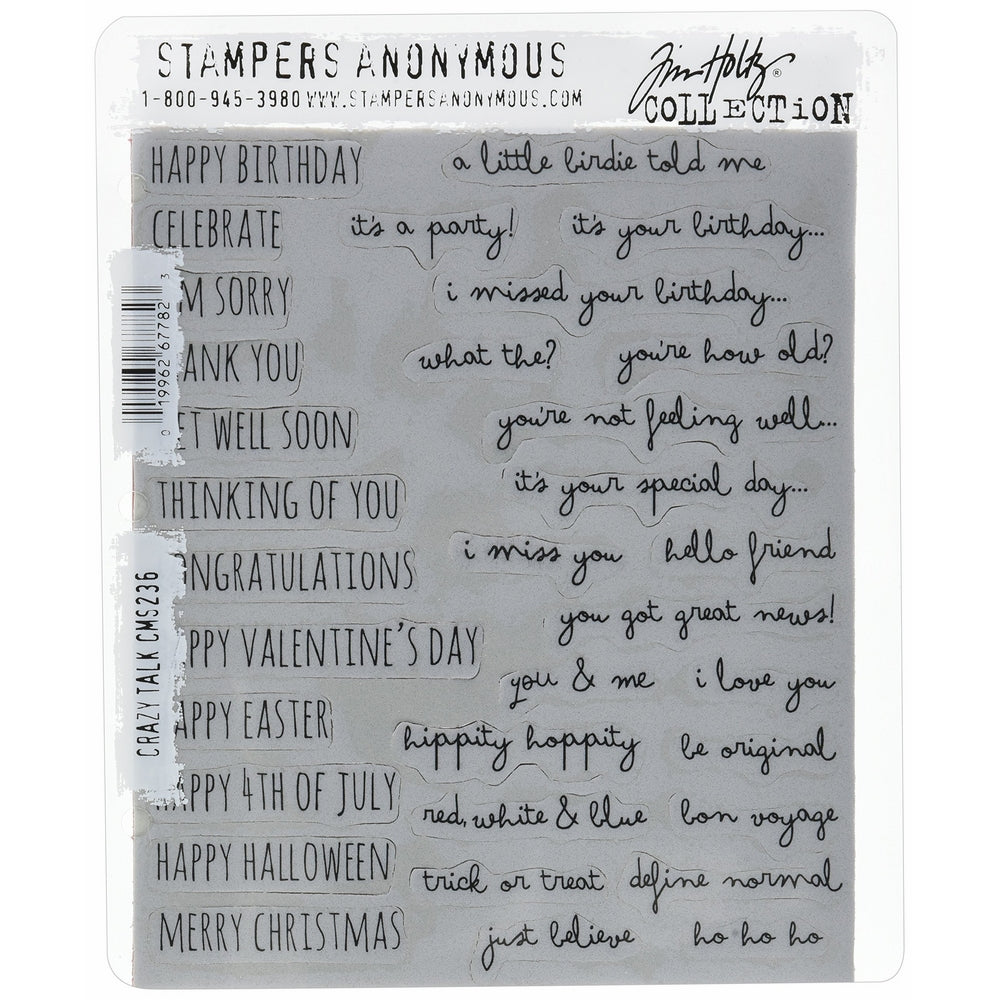 STAMPERS ANONYMOUS
1-800-945-3980 WWW.STAMPERSANONYMOUS.COM
Tim Holtz®
COLLECTION
HAPPY BIRTHDAY a little birdie told me
CELEBRATE it's a party! it's your birthday...
M SORRY i missed your birthday...
ANK YOU what the? you're how old?
ET WELL SOON you're not feeling well...
THINKING OF YOU it's your special day...
ONGRATULATIONS i miss you hello friend
you got great news!
PPY VALENTINE'S DAY you & me i love you
APPY EASTER hippity hoppity be original
APPY 4TH OF JULY red, white & blue bon voyage
HAPPY HALLOWEEN trick or treat define normal
MERRY CHRISTMAS just believe ho ho ho
0 19962 67782 3
CRAZY TALK CMS236